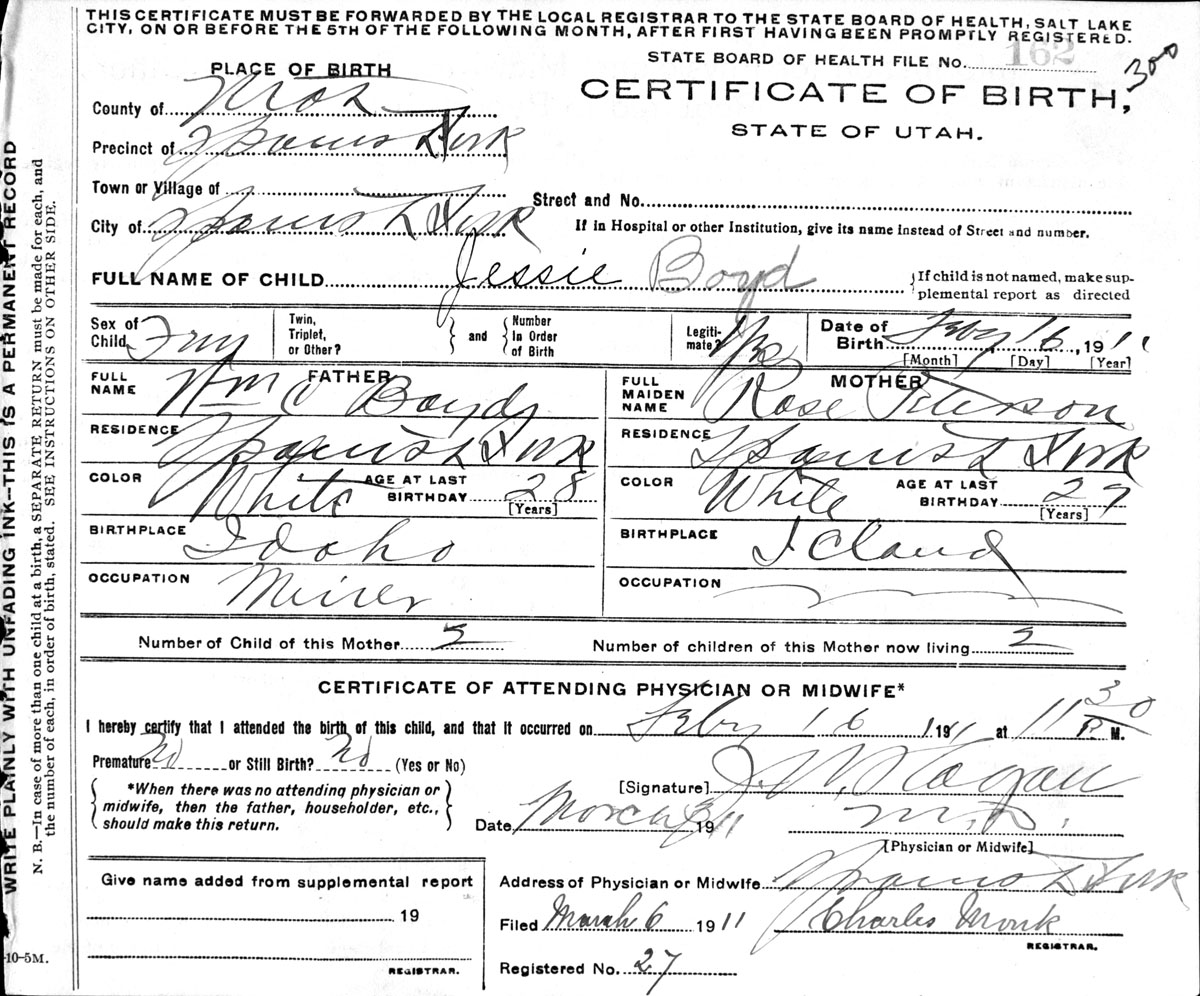 THIS CERTIFICATE MUST BE FORWARDED BY THE LOCAL REGISTRAR TO THE STATE BOARD OF HEALTH, SALT LAKE
CITY, ON OR BEFORE THE 5TH OF THE FOLLOWING MONTH, AFTER FIRST HAVING BEEN PROMPTLY REGISTERED.
STATE BOARD OF HEALTH FILE No. 162
300
PLACE OF BIRTH
CERTIFICATE OF BIRTH,
STATE OF UTAH.
County of
Precinct of Spanish Fork
Town or Village of
Street and No.
City of Spanish Fork
If in Hospital or other Institution, give its name instead of Street and number.
FULL NAME OF CHILD Jessie Boyd
If child is not named, make sup-
plemental report as directed
Sex of Child
Twin, Triplet, or Other? and Number in Order of Birth
Legiti-mate? Yes
Date of Birth Feby 16, 1911
[Month] [Day] [Year]
FATHER
FULL NAME Wm C Boyd
RESIDENCE Spanish Fork
COLOR White AGE AT LAST BIRTHDAY 28
[Years]
BIRTHPLACE Idaho
OCCUPATION Miner
MOTHER
FULL MAIDEN NAME Rose Peterson
RESIDENCE Spanish Fork
COLOR White AGE AT LAST BIRTHDAY 27
[Years]
BIRTHPLACE Icland
OCCUPATION
Number of Child of this Mother
Number of children of this Mother now living
CERTIFICATE OF ATTENDING PHYSICIAN OR MIDWIFE*
I hereby certify that I attended the birth of this child, and that it occurred on Feby 16 1911 at 11 30 P. M.
Premature No or Still Birth? No (Yes or No)
*When there was no attending physician or
midwife, then the father, householder, etc.,
should make this return.
[Signature] J. W. Hagan
Date March 3 1911 M.D.
[Physician or Midwife]
Give name added from supplemental report
19
REGISTRAR.
Address of Physician or Midwife Spanish Fork
Filed March 6 1911 Charles Monk
REGISTRAR.
Registered No. 27
-10-5M.
WRITE PLAINLY WITH UNFADING INK--THIS IS A PERMANENT RECORD
N. B.—In case of more than one child at a birth, a SEPARATE RETURN must be made for each, and
the number of each, in order of birth, stated. SEE INSTRUCTIONS ON OTHER SIDE.